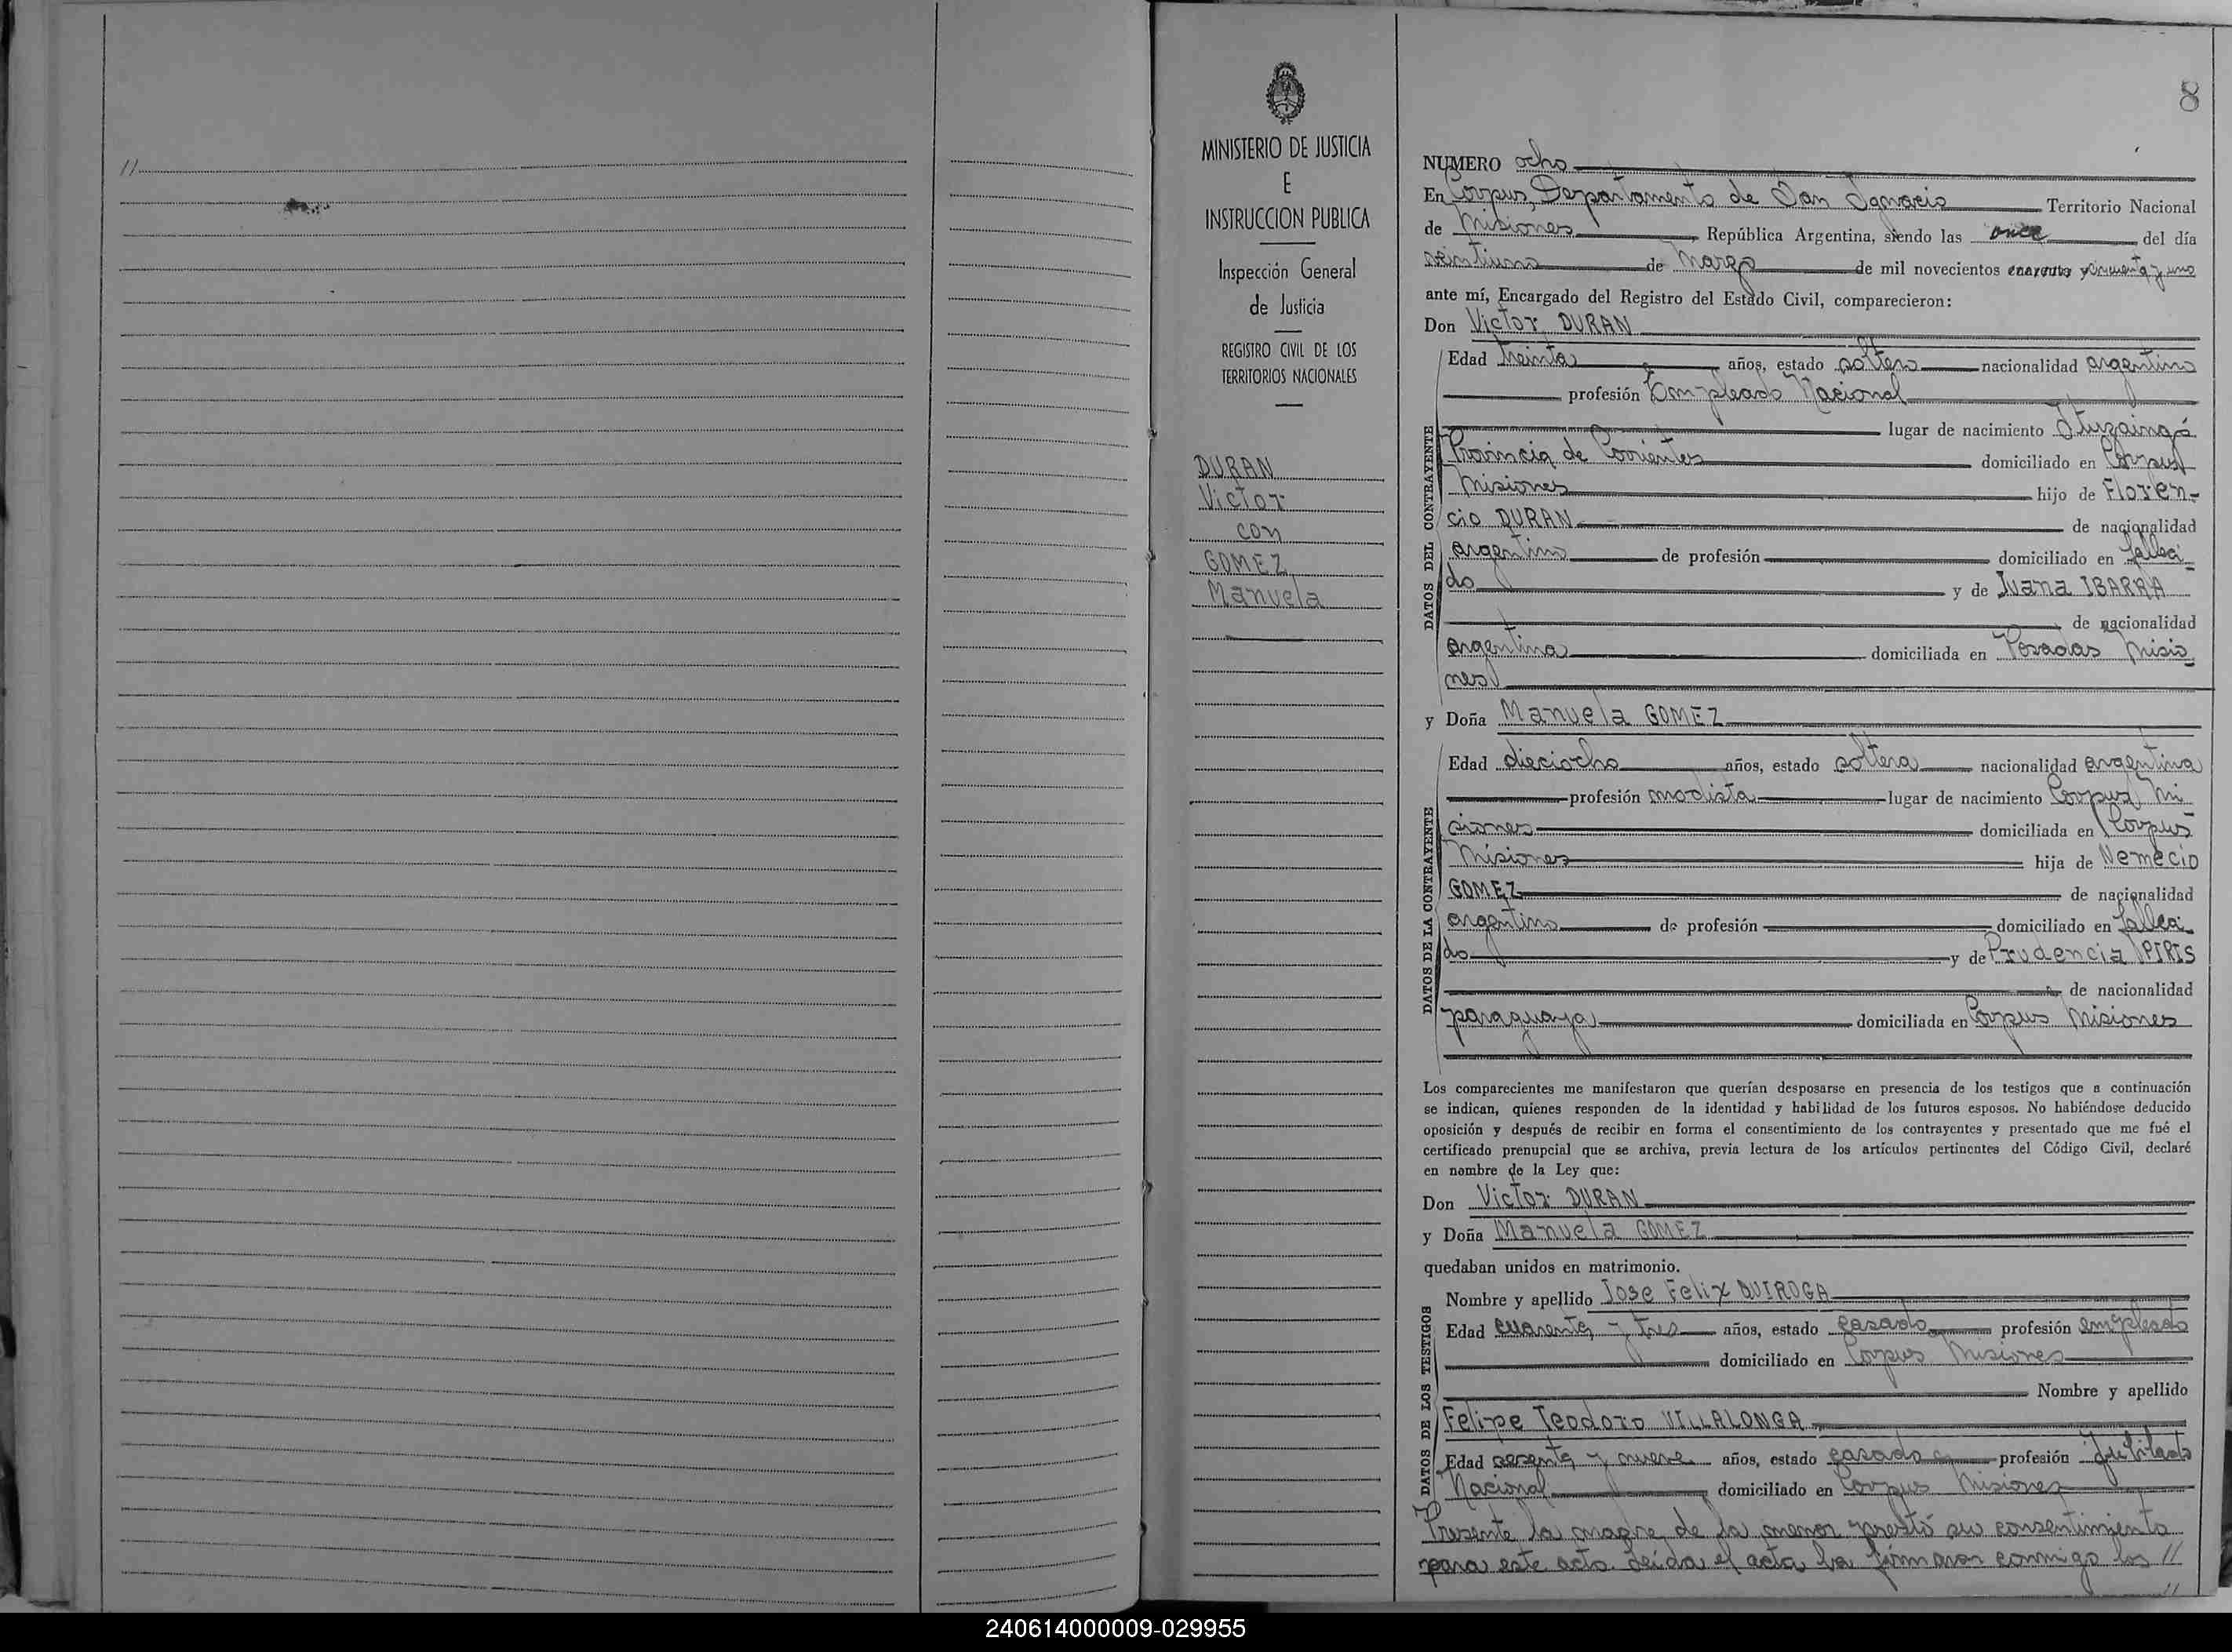 //
MINISTERIO DE JUSTICIA
E
INSTRUCCION PUBLICA
Inspección General
de Justicia
REGISTRO CIVIL DE LOS
TERRITORIOS NACIONALES
DURAN
Victor
con
GOMEZ
Manuela
8
NUMERO ocho
En Corpus, Departamento de San Ignacio Territorio Nacional
de Misiones, República Argentina, siendo las once, del día
veintiuno de Marzo de mil novecientos cuarenta y cincuenta y uno
ante mí, Encargado del Registro del Estado Civil, comparecieron:
Don Victor DURAN
DATOS DEL CONTRAYENTE
Edad treinta años, estado soltero nacionalidad argentino
profesión Empleado Nacional
lugar de nacimiento Ituzaingó
Provincia de Corrientes domiciliado en Corpus
Misiones hijo de Floren-
cio DURAN de nacionalidad
argentino de profesión domiciliado en falleci-
do y de Juana IBARRA
de nacionalidad
argentina domiciliada en Posadas Misio-
nes
y Doña Manuela GOMEZ
DATOS DE LA CONTRAYENTE
Edad dieciocho años, estado soltera nacionalidad argentina
profesión modista lugar de nacimiento Corpus Mi
siones domiciliada en Corpus
Misiones hija de Nemecio
GOMEZ de nacionalidad
argentino de profesión domiciliado en falleci-
do y de Prudencia PIRIS
de nacionalidad
paraguaya domiciliada en Corpus Misiones
Los comparecientes me manifestaron que querían desposarse en presencia de los testigos que a continuación
se indican, quienes responden de la identidad y habilidad de los futuros esposos. No habiéndose deducido
oposición y después de recibir en forma el consentimiento de los contrayentes y presentado que me fué el
certificado prenupcial que se archiva, previa lectura de los artículos pertinentes del Código Civil, declaré
en nombre de la Ley que:
Don Victor DURAN
y Doña Manuela GOMEZ
quedaban unidos en matrimonio.
DATOS DE LOS TESTIGOS
Nombre y apellido Jose Felix QUIROGA
Edad cuarenta y tres años, estado casado profesión empleado
domiciliado en Corpus Misiones
Nombre y apellido
Felipe Teodoro VILLALONGA
Edad sesenta y nueve años, estado casado profesión Jubilado
Nacional domiciliado en Corpus Misiones
Presente la madre de la menor prestó su consentimiento
para este acto. Leída el acta la firmaron conmigo los //
//
240614000009-029955